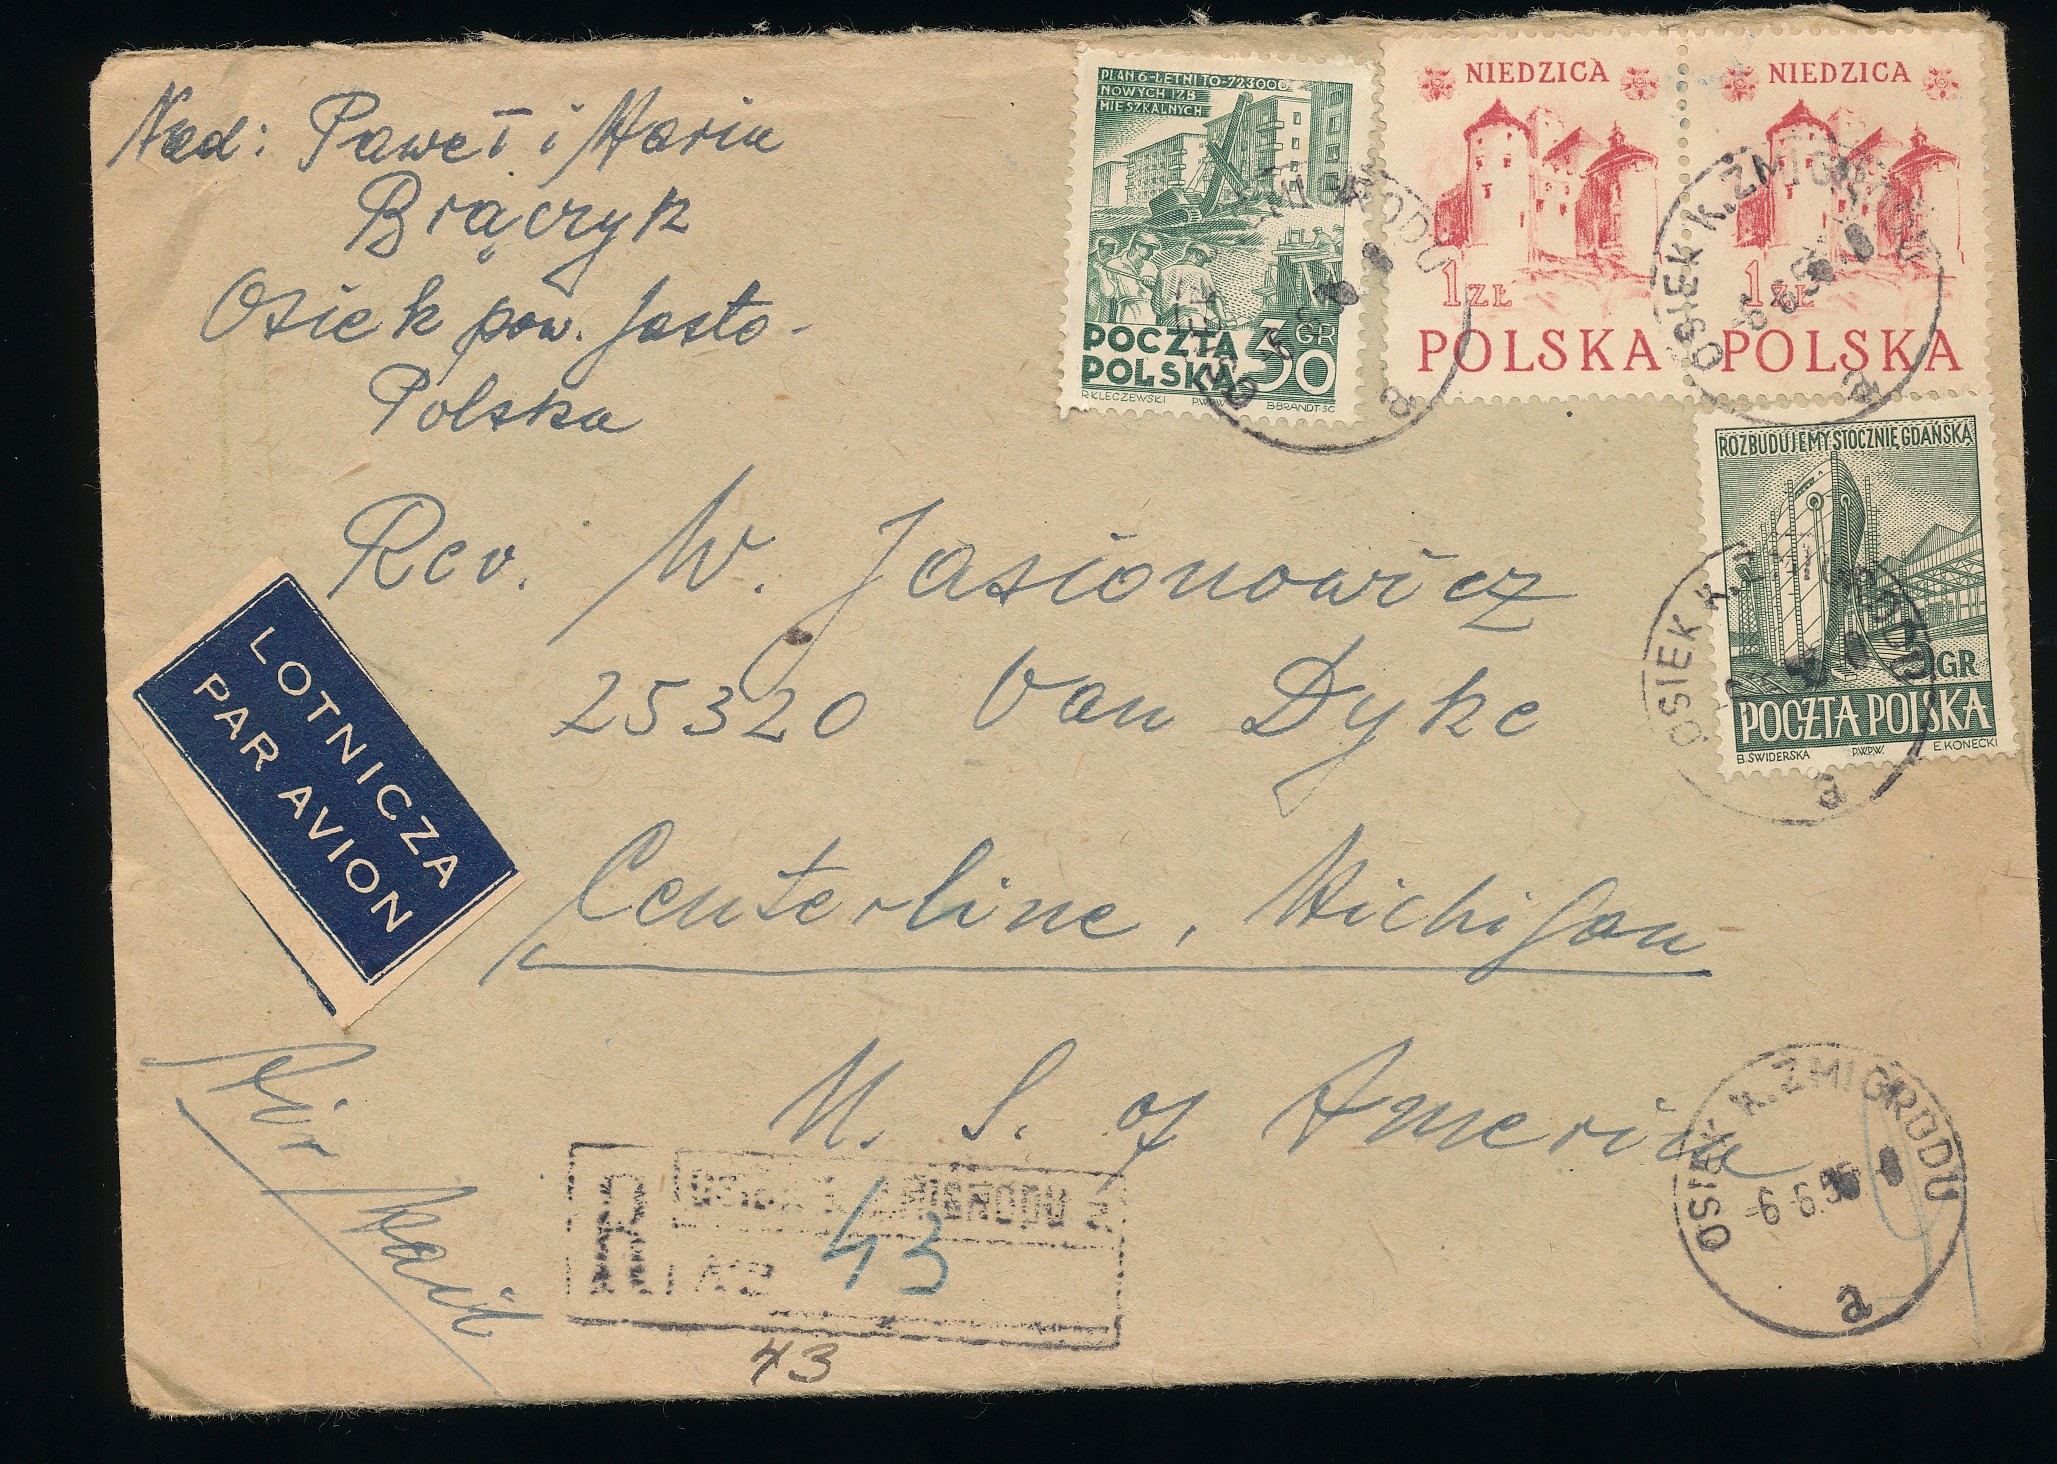 Nad: Paweł i Maria
Brączyk
Osiek pow. Jasło -
Polska
PLAN 6-LETNI TO-723000
NOWYCH IZB
MIESZKALNYCH
POCZTA
POLSKA
30 GR
R.KLECZEWSKI P.W.P.W. B.BRANDT-SC
NIEDZICA
1 ZŁ
POLSKA
NIEDZICA
1 ZŁ
POLSKA
ROZBUDUJEMY STOCZNIĘ GDAŃSKĄ
GR
POCZTA POLSKA
B.ŚWIDERSKA P.W.P.W. E.KONECKI
OSIEK K. ŻMIGRODU
a
OSIEK K. ŻMIGRODU
a
Rev. W. Jasionowicz
25320 Van Dyke
Centerline, Michigan
U. S. of America
LOTNICZA
PAR AVION
Air Mail
R
43
43
OSIEK K. ZMIGRODU
-6-6.56
a